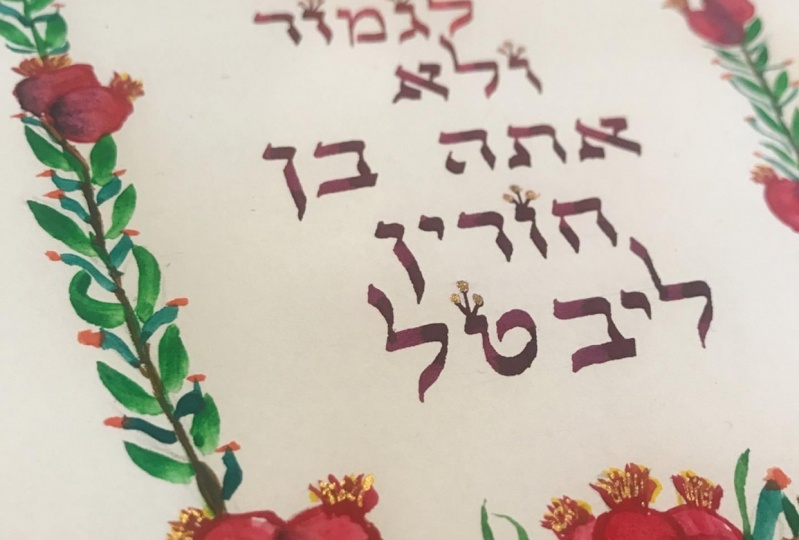 לגמור
ולא
אתה בן
חורין
ליבטל